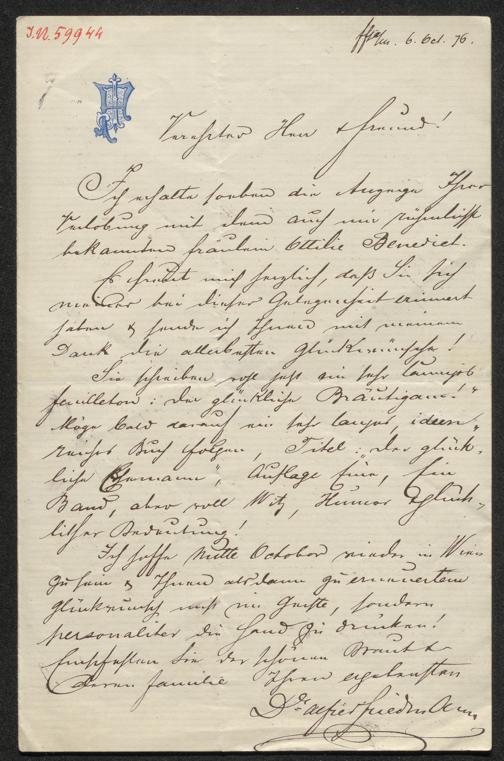 I.N. 59944
Ffm. 6. Oct. 76.
Verehrter Herr & Freund!
Ich erhalte soeben die Anzeige Ihrer
Verlobung mit dem auch mir rühmlichst
bekannten Fräulein Ottilie Benedict.
Es freut mich herzlich, daß Sie sich
meiner bei dieser Gelegenheit erinnert
haben & sende ich Ihnen mit meinem
Dank die allerbesten Glückwünsche!
Sie schreiben wohl jetzt ein sehr launiges
Feuilleton: "der glückliche Bräutigam!"
Möge bald darauf ein sehr langes, ideen-
reiches Buch folgen, Titel: "der glück-
liche Ehemann", Auflage Eine, Ein
Band, aber voll Witz, Humor & glück-
licher Bedeutung!
Ich hoffe Mitte October wieder in Wien
zu sein & Ihnen alsdann zu erneuertem
Glückwunsch nicht im Geiste, sondern
personaliter die Hand zu drücken!
Empfehlen Sie der schönen Braut &
deren Familie Ihren ergebensten
Dr. Alfred Friedmann